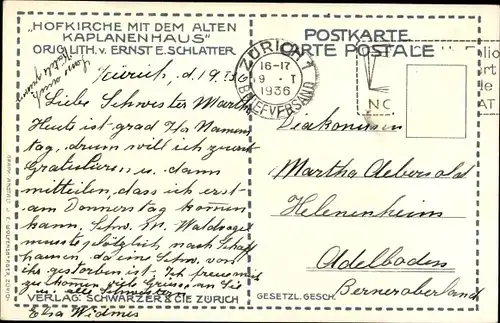 „HOFKIRCHE MIT DEM ALTEN
KAPLANENHAUS"
ORIG. LITH. v. ERNST E. SCHLATTER
POSTKARTE
CARTE POSTALE
ZÜRICH 1
16-17
9. I
1936
BRIEFVERSAND
Zürich, d. 19. 36
Liebe Schwester Martha
Heute ist grad Ihr Namens
tag, drum will ich zuerst
Gratulieren u. dann
mitteilen, dass ich erst
am Donnerstag kommen
kann, Schw. M.
musste plötzlich nach Schaff
hausen, da eine Schw. von
ihr gestorben ist. Ich freue mich
zu kommen viele Grüsse an Sie
u. alle Schwestern
Elsa Widmer
Diakonisse
Martha Aebersold
Helenenheim
Adelboden
Berneroberland
VERLAG: SCHWARZER & CIE ZÜRICH
GESETZL. GESCH.